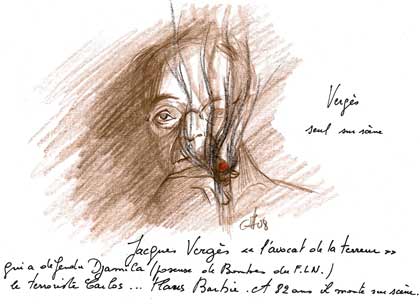 Vergès
seul sur scène
08
Jacques Vergès « l'avocat de la terreur »
qui a défendu Djamila (poseuse de Bombes du F.L.N.)
le terroriste Carlos ... Klaus Barbie. A 82 ans il monte sur scène.